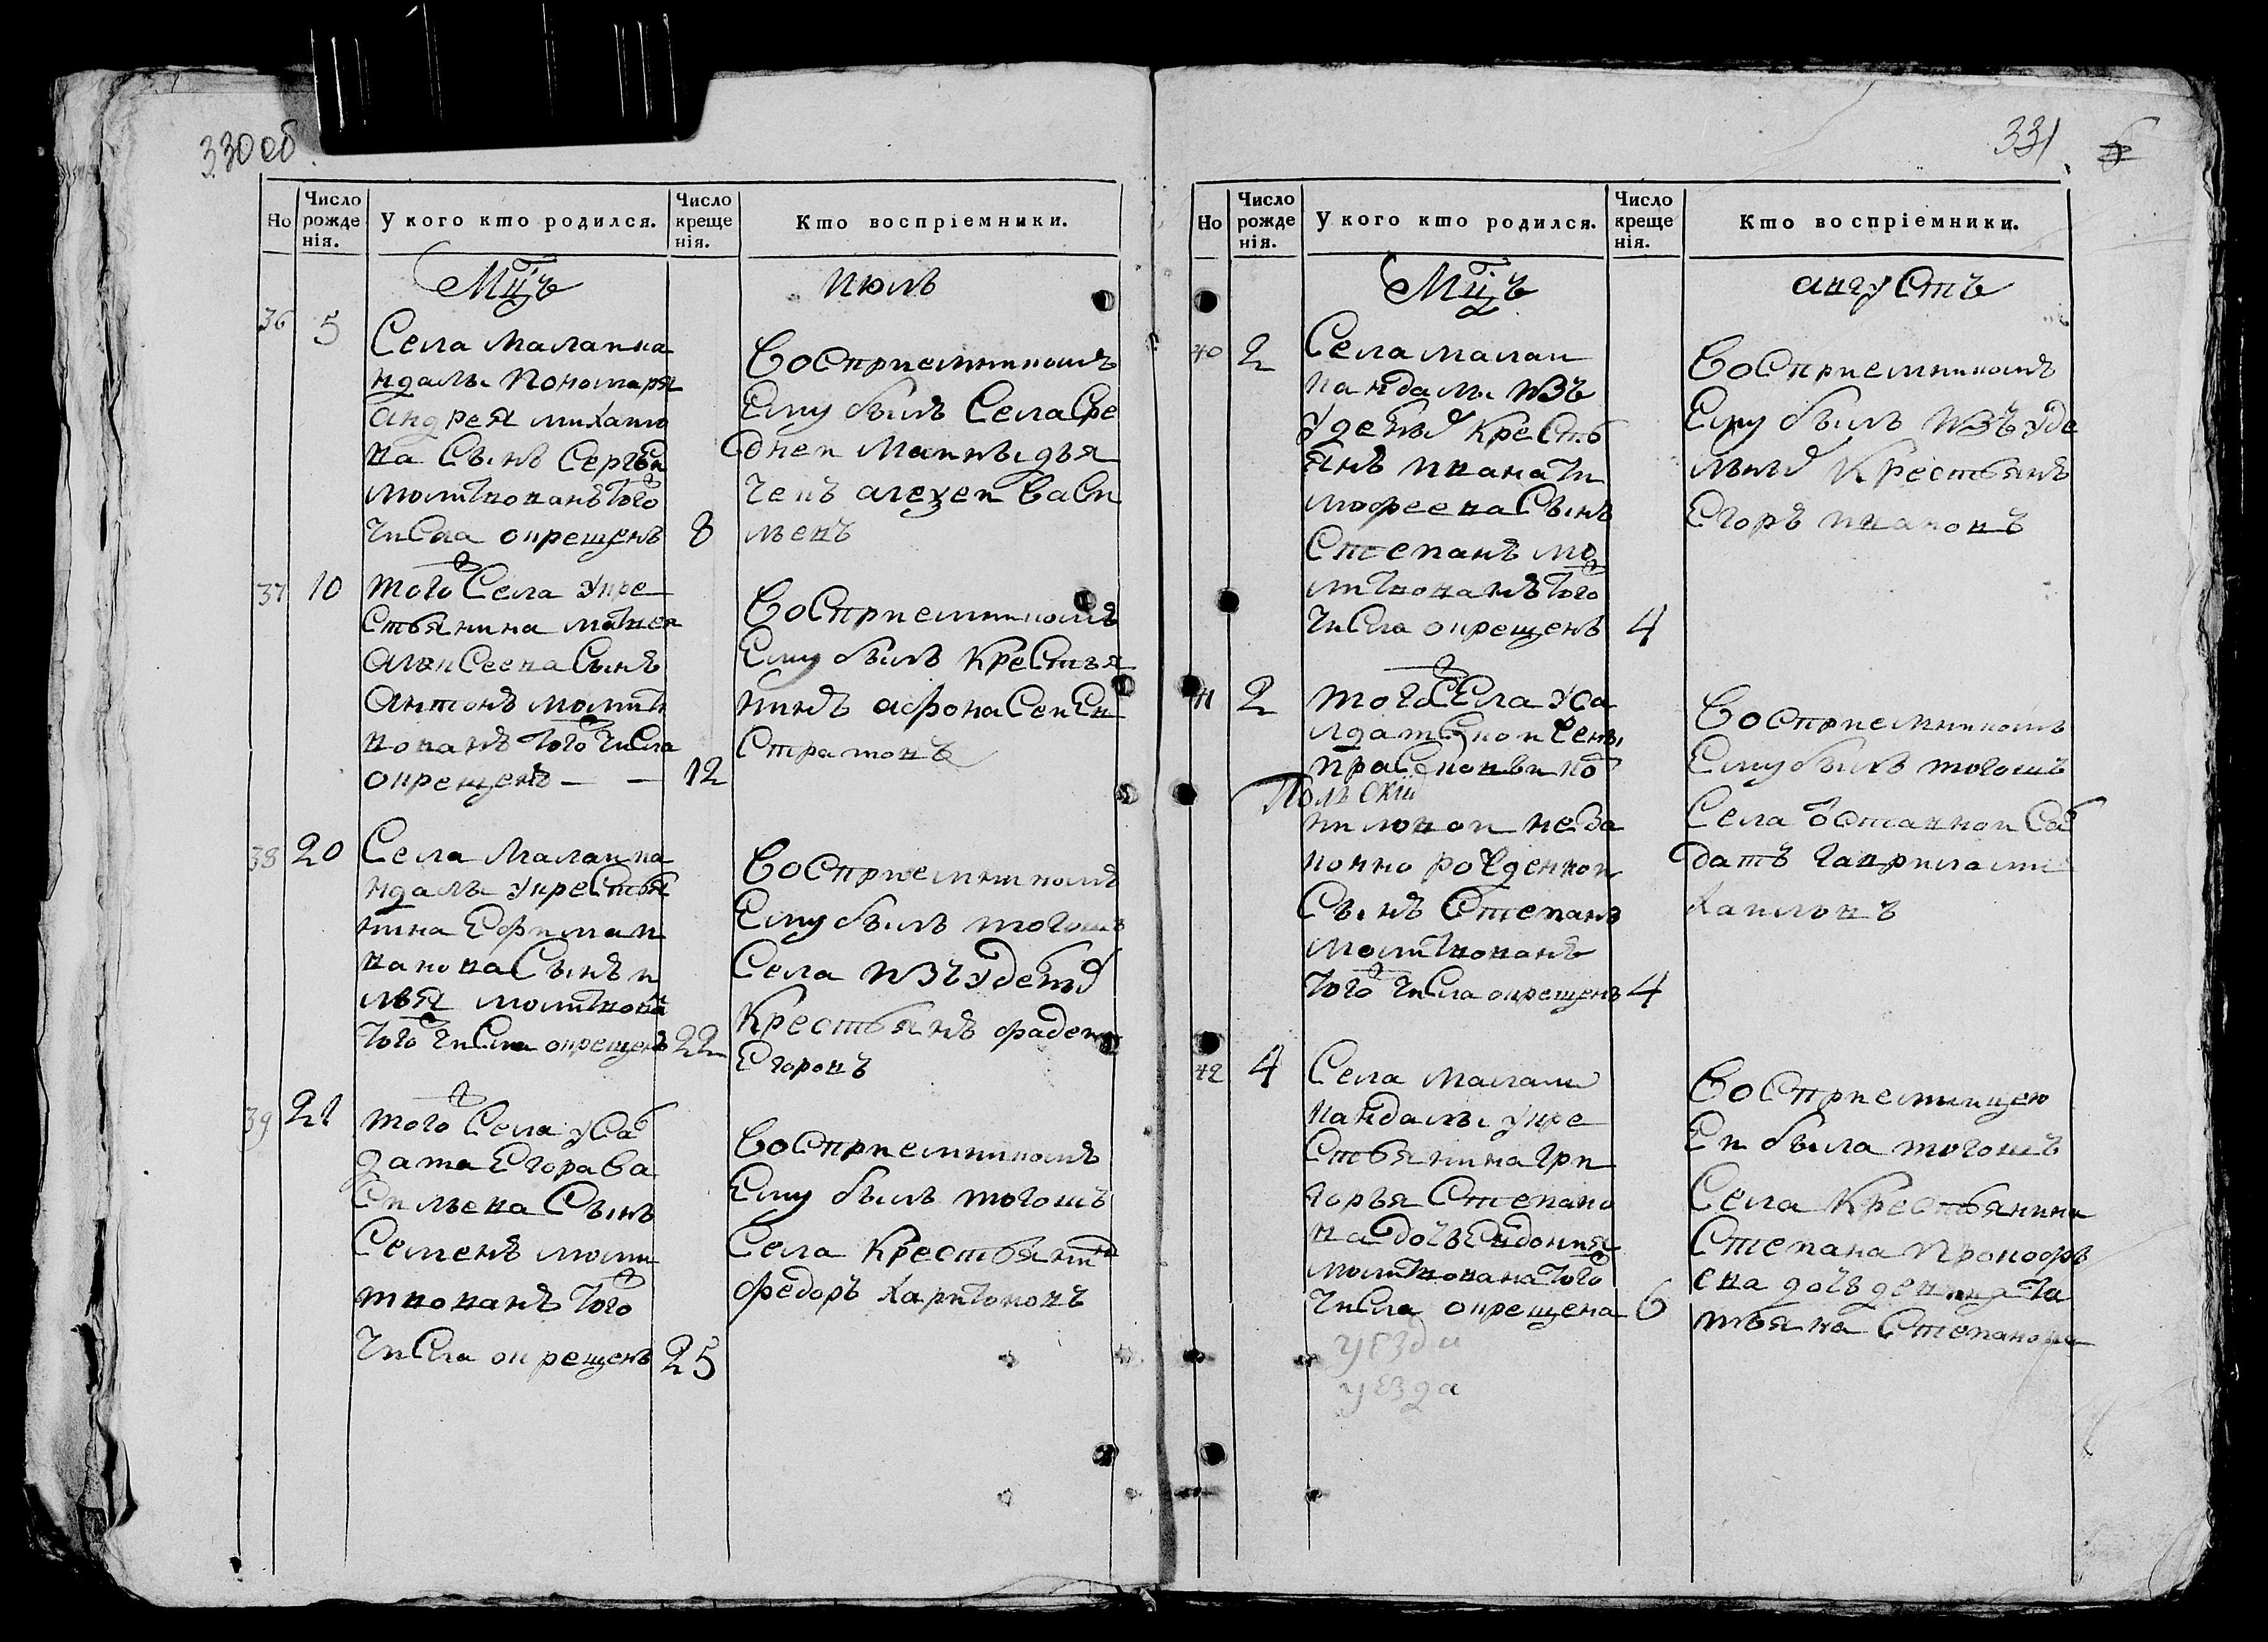 330 об.
Но
Число рожде нія.
У кого кто родился.
Число креще нія.
Кто воспріемники.
Мцъ
июль
36
5
Села малаика
ндалы пономаря
андрея михаило
ва Сынъ Сергѣи
молитвованъ того
числа окрещенъ
8
Восприемникомъ
Ему былъ Села Сре
днеи
дья
чекъ алеѯеи Васи
льевъ
37
10
того Села укре
стьянина матвея
алекСеева Сынъ
антонъ молит
вованъ того числа
окрещенъ — —
12
ВоСприемникомъ
Ему былъ КреСтья
нинъ афонаСеи Ев
Стратовъ
38
20
Села малаика
ндалы укреСтья
нина Ефима и
ванова Сынъ и
лья молитвова
того числа окрещенъ
22
ВоСприемникомъ
Ему былъ тогошъ
Села изъ удѣлны
Крестьянъ фадеи
Егоровъ
39
21
того Села уСал
дата Егора Ва
Сильева Сынъ
Семенъ моли
твованъ того
чиСла окрещенъ
25
ВоСприемникомъ
Ему былъ тогошъ
Села Крестьянинъ
федоръ Харитоновъ
331
Но
Число рожде нія.
У кого кто родился.
Число креще нія.
Кто воспріемники.
Мцъ
августъ
40
2
Села малаи
кандалы изъ
удѣлны КреСть
янъ ивана Ти
мофеева Сынъ
Степанъ мо
литвованъ того
чиСла окрещенъ
4
ВоСприемникомъ
Ему былъ изъ уде
льны Крестьянъ
Егоръ ивановъ
41
2
того Села уСа
лдатСкои жены
праСковьи но
Польскiй
ниловои неза
конно рожденнои
Сынъ Степанъ
молитвованъ
того чиСла окрещенъ
4
ВоСприемникомъ
Ему былъ тогошъ
Села отставнои Сал
датъ гаврила ми
хаиловъ
42
4
Села малаи
кандалы укре
Стьянина гри
горья Степано
ва дочь Евдокия
молитвована того
чиСла окрещена
6
ВоСприемницею
Еи была тогошъ
Села Крестьянина
Степана Прокофь
ева дочь девица Та
тьяна Степанова
уѣзди
уѣзда